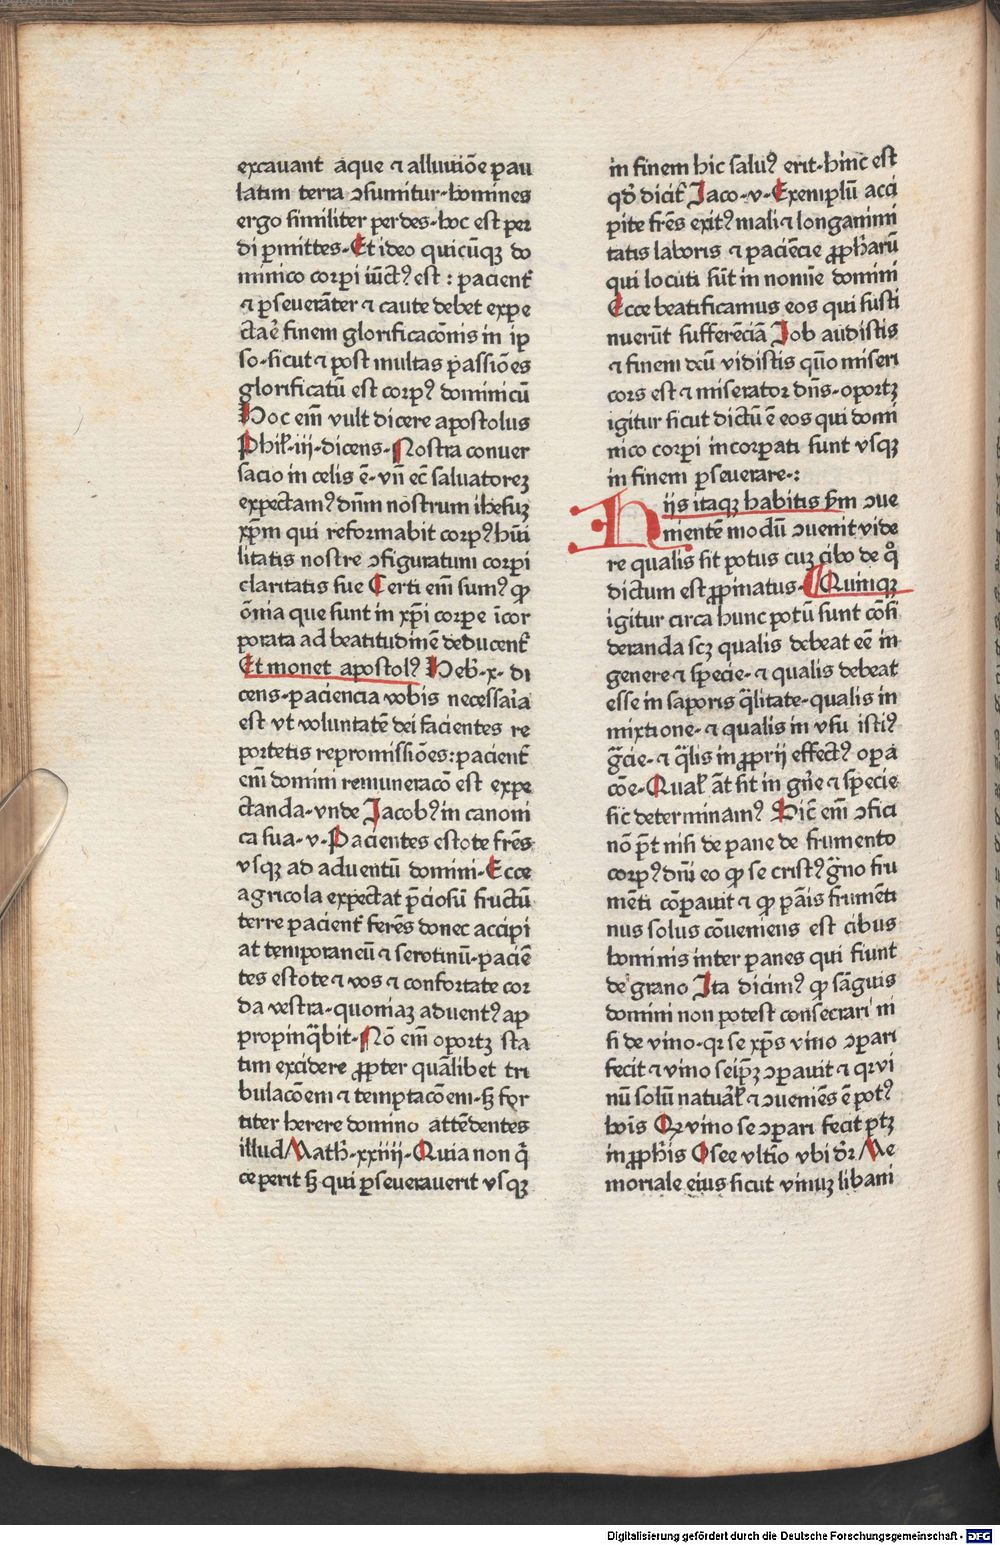 excauant aque ⁊ alluuiōe pau
latim terra ↄsumitur·homines
ergo similiter perdes·hoc est per
di ꝑmittes·Et ideo quicūqꝫ do
minico corpi iūctꝰ est : pacient̃
⁊ ꝑseuerāter ⁊ caute debet expe
ctaē finem glorificacōnis in ip̄
so·sicut ⁊ post multas passiōes
glorificatū est corpꝰ dominicū
Hoc em̄ vult dicere apostolus
Phil·iij·dicens·Nostra conuer
sacio in celis ē·vn̄ ec̄ saluatoreꝫ
expectamꝰ dn̄m nostrum ihesuꝫ
xp̄m qui reformabit corpꝰ hūi
litatis nostre ↄfiguratum corpi
claritatis sue Certi em̄ sumꝰ ꝙ
ōmia que sunt in xp̄i corpe īcor
porata ad beatitudinē deducent̃
Et monet apostolꝰ Heb·x·di
cens·paciencia vobis necessaria
est vt voluntatē dei facientes re
portetis repromissiōes:pacient̃
em̄ domini remuneracō est expe
ctanda·vnde Jacobꝰ in canoni
ca sua·v·Pacientes estote frēs
vsqꝫ ad aduentū domini·Ecce
agricola expectat p̄ciosū fructū
terre pacient̃ ferēs donec accipi
at temporaneū ⁊ serotinū·paciē
tes estote ⁊ vos ⁊ confortate cor
da vestra·quoniaꝫ aduentꝰ ap
propinq̄bit·Nō em̄ oportꝫ sta
tim excidere ꝓpter quālibet tri
bulacōem ⁊ temptacōem·sꝫ for
titer herere domino attēdentes
illud Math·xxiiii·Quia non q̄
ce perit sꝫ qui ꝑseuerauerit vsqꝫ
in finem hic saluꝰ erit·hinc est
qd̄ dicit̃ Jaco·v·Exemplū acci
pite frēs exitꝰ mali ⁊ longanimi
tatis laboris ⁊ paciēcie ꝓphārū
qui locuti sūt in nomīe domini
Ecce beatificamus eos qui susti
nuerūt sufferēciā Job audistis
⁊ finem deū vidistis quō miseri
cors est ⁊ miserator dn̄s·oportꝫ
igitur sicut dictū ē eos qui domi
nico corpi incorpati sunt vsqꝫ
in finem ꝑseuerare·:
Hijs itaqꝫ habitis ꝑm ↄue
nientē modū ↄuenit vide
re qualis sit potus cuꝫ cibo de q̊
dictum est ꝓpinatus·Quinqꝫ
igitur circa hunc potū sunt cōsi
deranda scꝫ qualis debeat eē in
genere ⁊ specie·⁊ qualis debeat
esse in saporis q̄litate·qualis in
mixtione·⁊ qualis in vsu istiꝰ
gr̄cie·⁊ q̄lis in ꝓprij effectꝰ opa
cōe·Qual aūt sit in gn̄e ⁊ specie
sic determinamꝰ Dic̄ em̄ ↄfici
nō p̄t nisi de pane de frumento
corpꝰ dn̄i eo ꝙ se cristꝰ grāno fru
mēti cōpauit ⁊ ꝙ pāis frumēti
nus solus cōueniens est cibus
hominis inter panes qui fiunt
de grano Ita dicimꝰ ꝙ sāguis
domini non potest consecrari ni
si de vino·qꝛ se xp̄s vino ↄpari
fecit ⁊ vino seip̄ꝫ ↄpauit ⁊ qꝛ vi
nū solū natuāl ⁊ ↄueniēs ē potꝰ
hoīs Qꝛ vino se ↄpari fecit ptꝫ
in ꝓphīs Osee vltīo vbi dr̄ Me
moriale eius sicut vinuꝫ libani
Digitalisierung gefördert durch die Deutsche Forschungsgemeinschaft - DFG